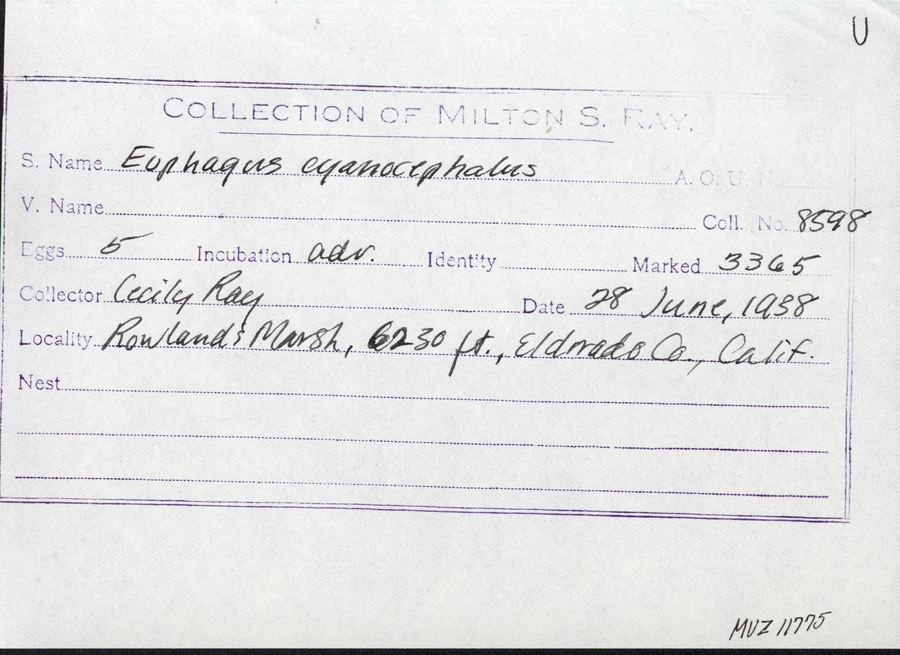 U
COLLECTION OF MILTON S. RAY.
S. Name Euphagus cyanocephalus A. O. U. N
V. Name Coll. No. 8598
Eggs 5 Incubation adv. Identity Marked 3365
Collector Cecily Ray Date 28 June, 1938
Locality Rowland's Marsh, 6230 ft., Eldorado Co., Calif.
Nest
MVZ 11775